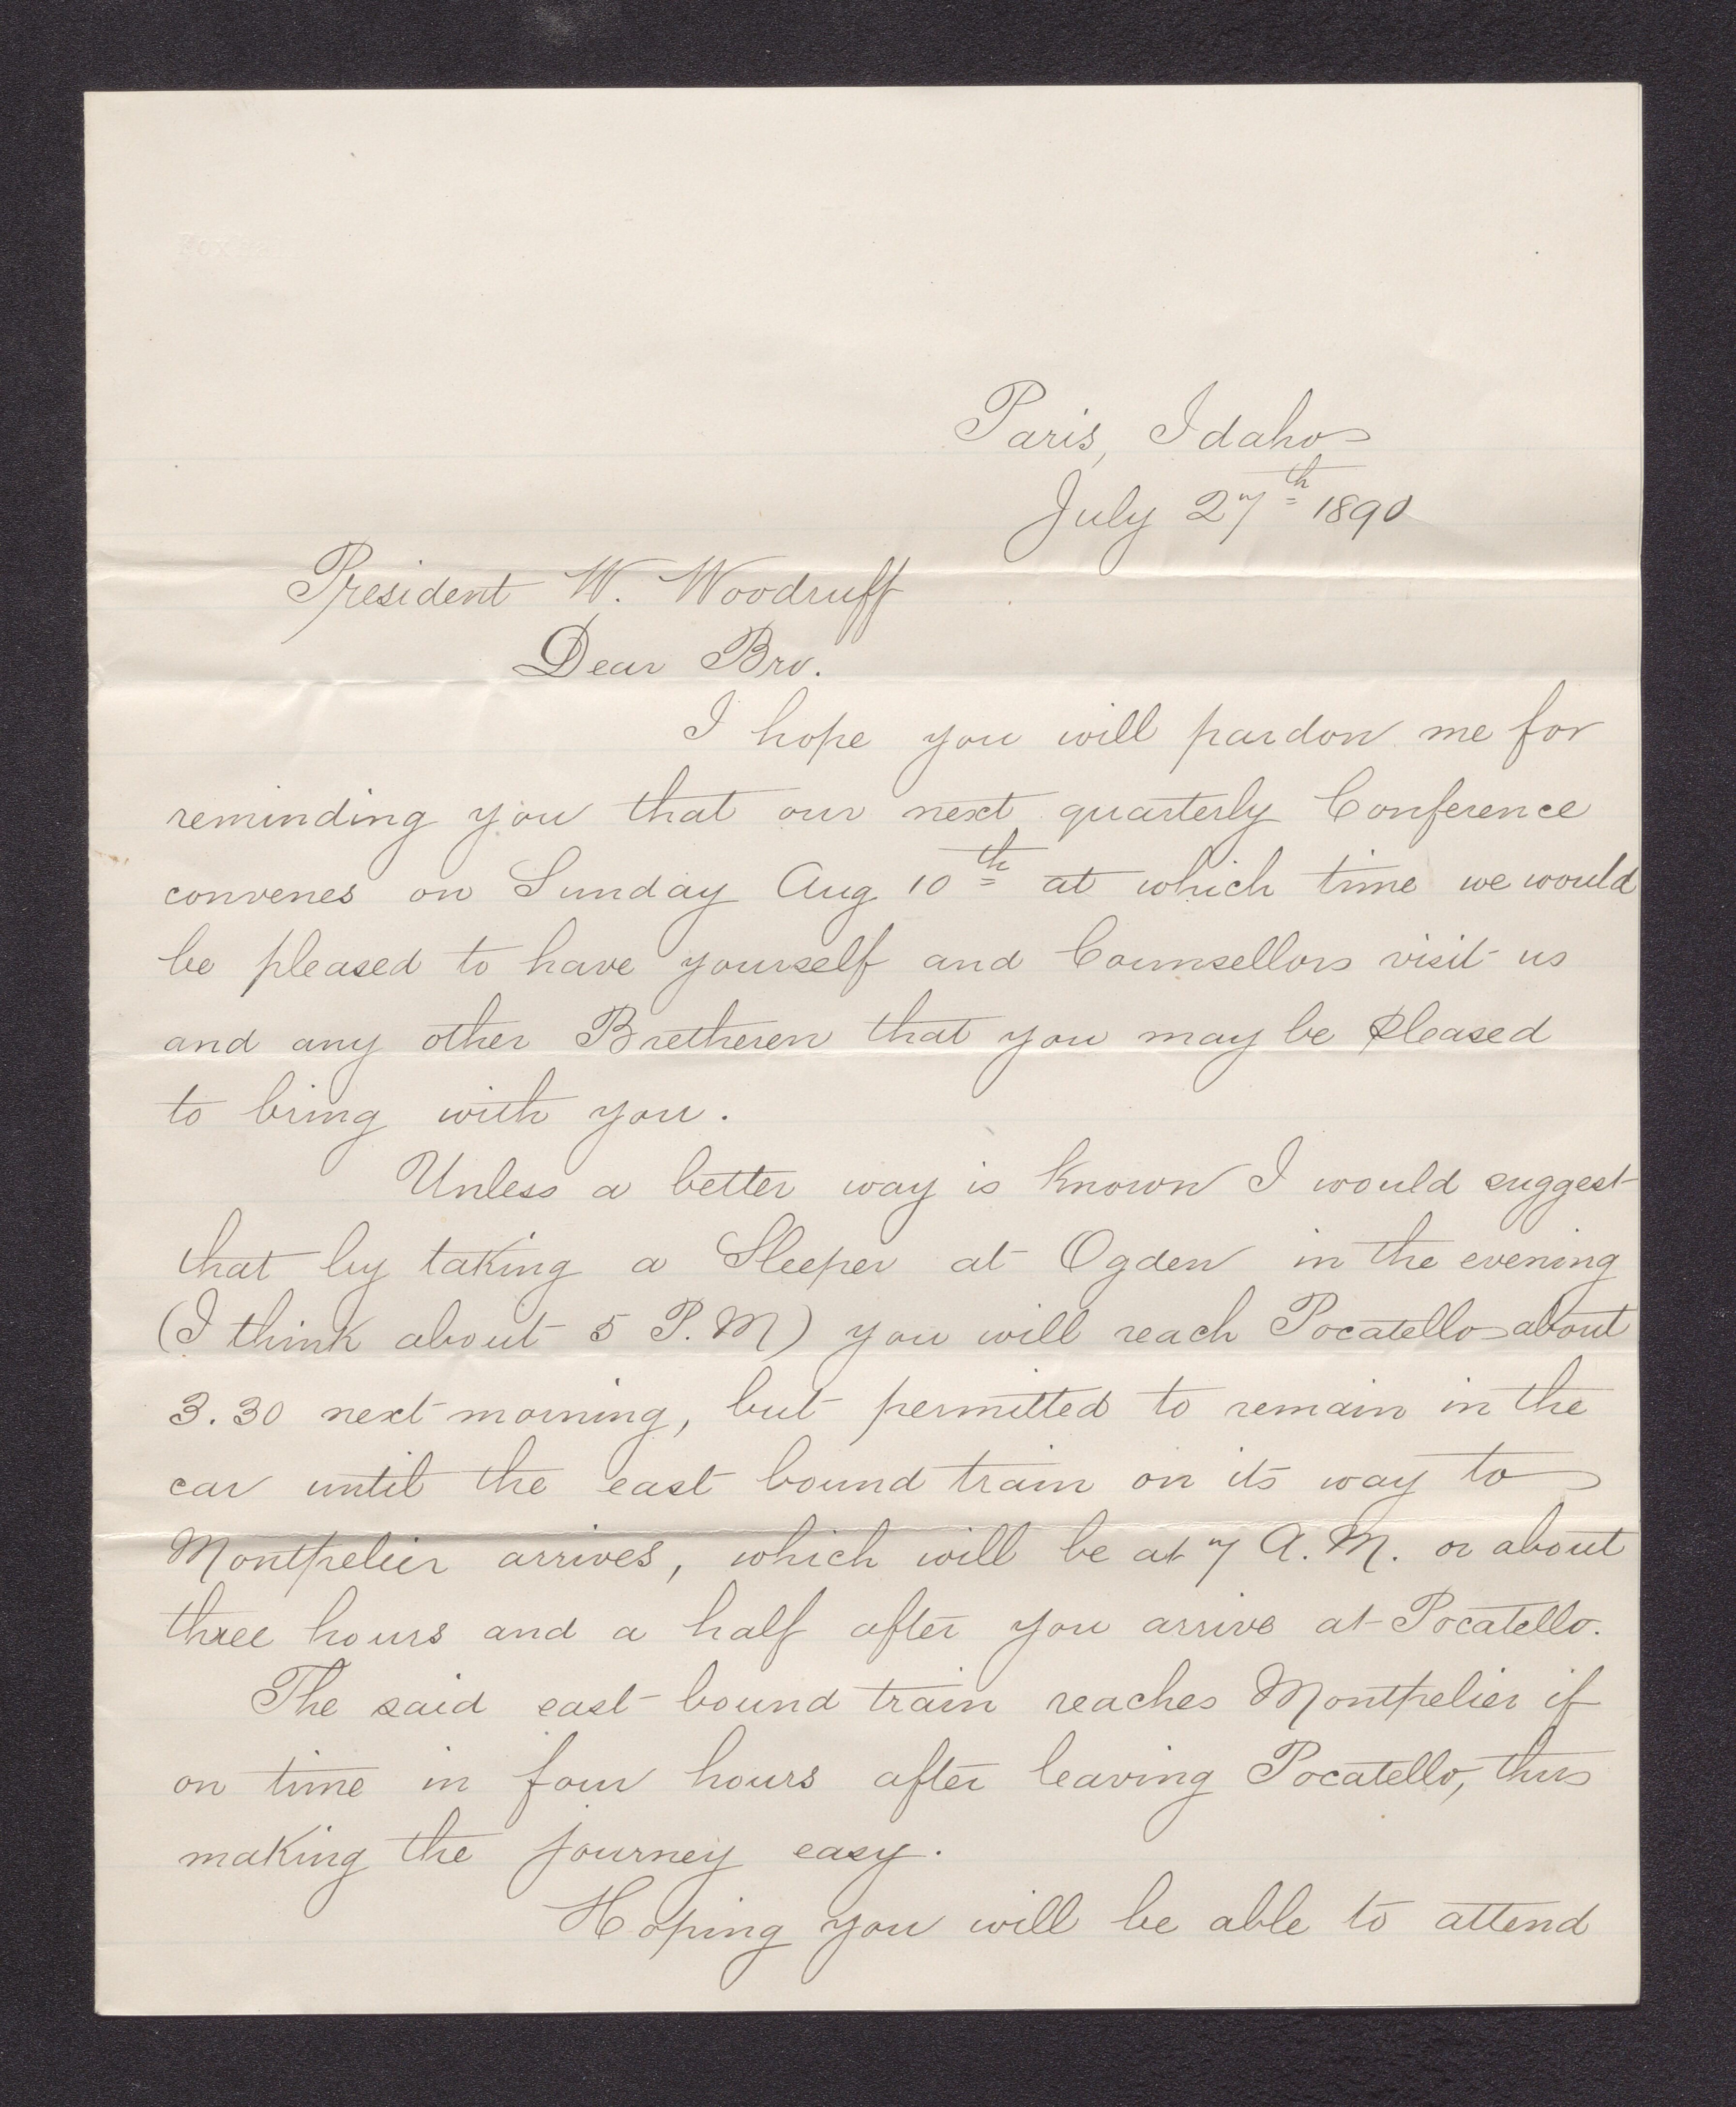 Paris, Idaho
July 27th 1890
President W. Woodruff
Dear Bro.
I hope you will pardon me for
reminding you that our next quarterly Conference
convenes on Sunday Aug 10th at which time we would
be pleased to have yourself and Counsellors visit us
and any other Bretheren that you may be pleased
to bring with you.
Unless a better way is known I would suggest
that by taking a Sleeper at Ogden in the evening
(I think about 5 P.M) you will reach Pocatello about
3.30 next morning, but permitted to remain in the
car until the east bound train on its way to
Montpelier arrives, which will be at 7 A.M. or about
three hours and a half after you arrive at Pocatello.
The said east bound train reaches Montpelier if
on time in four hours after leaving Pocatello, thus
making the journey easy.
Hoping you will be able to attend